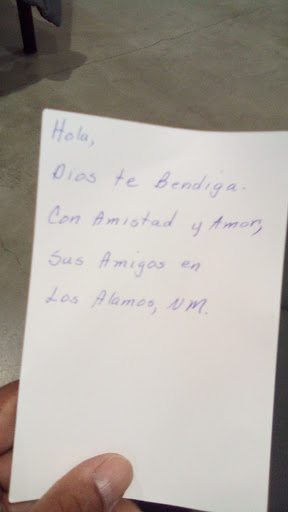 Hola,
Dios te Bendiga.
Con Amistad y Amor,
Sus Amigos en
Los Alamos, NM.